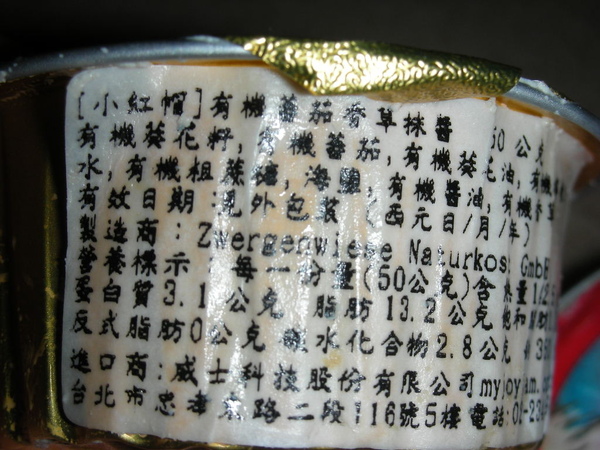 [小紅帽]有機蕃茄香草抹醬 50 公克
有機葵花籽, 有機蕃茄, 有機葵花油, 有機
水, 有機粗蔗糖, 海鹽, 有機醬油, 有機香草
有效日期:見外包裝 (西元日/月/年)
製造商: Zwergenwiese Naturkost GmbH
營養標示: 每一份量(50公克)含 熱量
蛋白質3.1公克 脂肪 13.2 公克 飽和脂肪
反式脂肪0公克 碳水化合物2.8公克
進口商:威士科技股份有限公司myjoyam.
台北市忠孝東路二段116號5樓 電話: